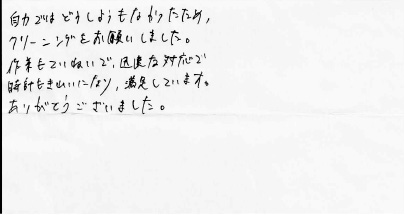 自力ではどうしようもなかったため，
クリーニングをお願いしました。
作業もていねいで，迅速な対応で
時計もきれいになり，満足しています。
ありがとうございました。